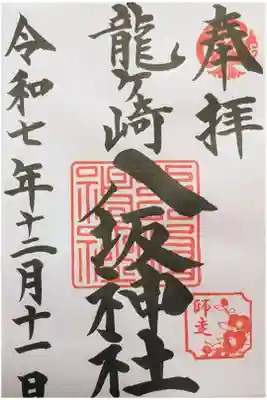 奉拝
龍ヶ崎
八坂神社
令和七年十二月十一日
師走